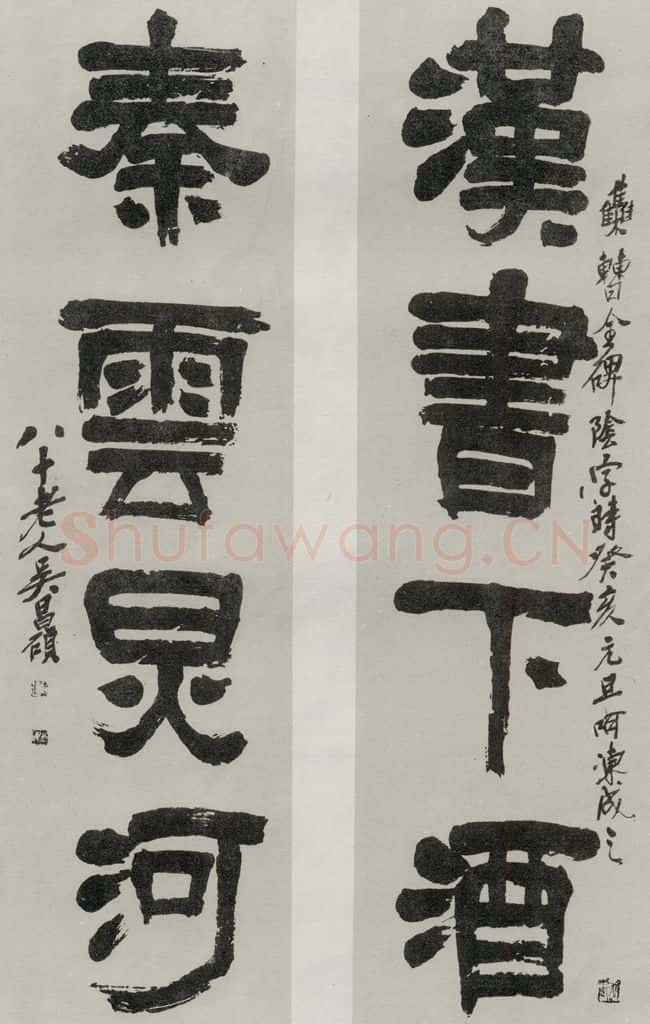 漢書下酒
雧曹全碑陰字時癸亥元旦呵凍成之
秦雲炅河
八十老人吳昌碩
Shufawang.CN